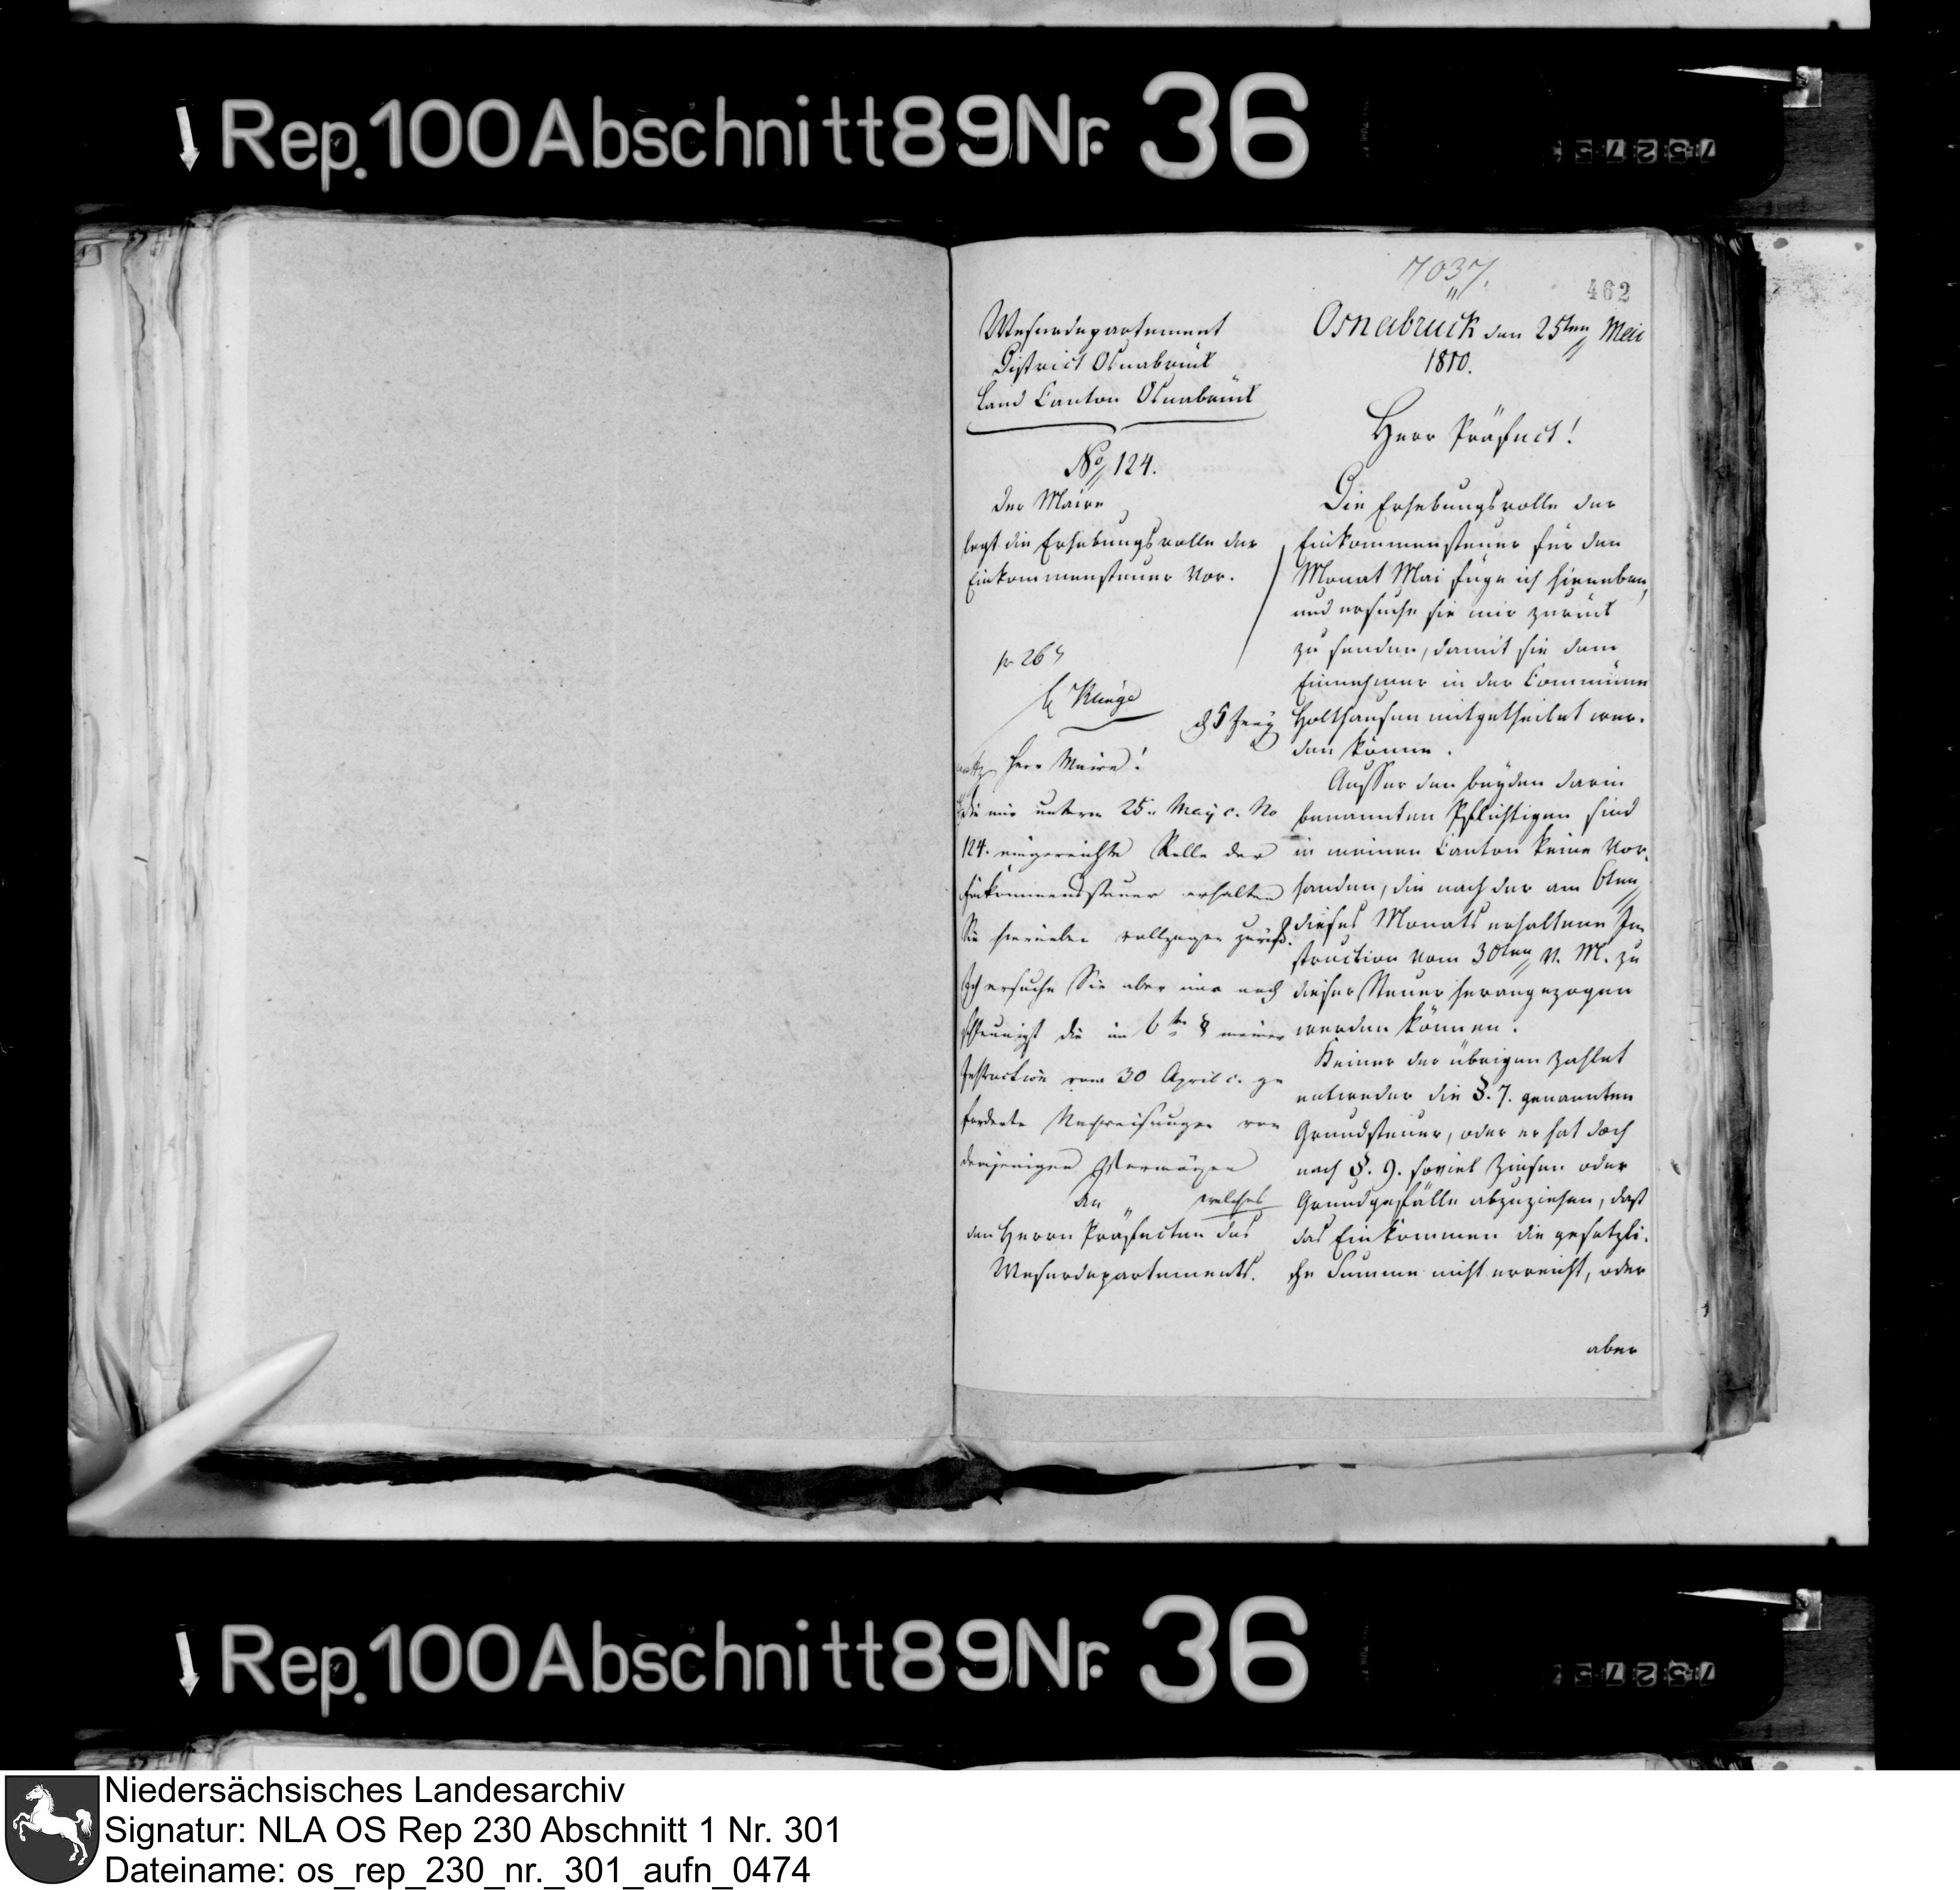 Rep. 100 Abschnitt 89 Nr. 36
7037.
462
Weserdepartement
District Osnabrück
Land Canton Osnabrück
No 124.
Der Maire
legt die Erhebungsrolle der
Einkommensteuer vor.
pr 26
Kluge
Herr Maire!
Die mir unterm 25. May c. No
124. eingereichte Rolle der
Einkommenssteuer erhalten
Sie hierneben vollzogen zurück.
Ich ersuche Sie aber mir noch
schleunigst die im 6ten § meiner
Instruction vom 30 April c. ge
forderte Nachweisungen von
demjenigen Vermögen
welches
An
den Herrn Präfecten des
Weserdepartements.
Osnabrück den 25ten Mai
1810.
Herr Präfect!
Die Erhebungsrolle der
Einkommensteuer für den
Monat Mai füge ich hierneben,
und ersuche sie mir zurück
zu senden, damit sie dem
Einnehmer in der Commüne
Holthausen mitgetheilet wer-
den könne.
Ausser den beyden darin
benannten Pflichtigen sind
in meinem Canton keine vor-
handen, die nach der am 6ten
dieses Monats erhaltenen In-
struction vom 30ten v. M. zu
dieser Steuer herangezogen
werden können.
Keiner der übrigen zahlet
entweder die §. 7. genannten
Grundsteuer, oder er hat doch
nach §. 9. soviel Zinsen oder
Grundgefälle abzuziehen, daß
das Einkommen die gesetzli-
che Summe nicht erreicht, oder
aber
Rep. 100 Abschnitt 89 Nr. 36
Niedersächsisches Landesarchiv
Signatur: NLA OS Rep 230 Abschnitt 1 Nr. 301
Dateiname: os_rep_230_nr._301_aufn_0474